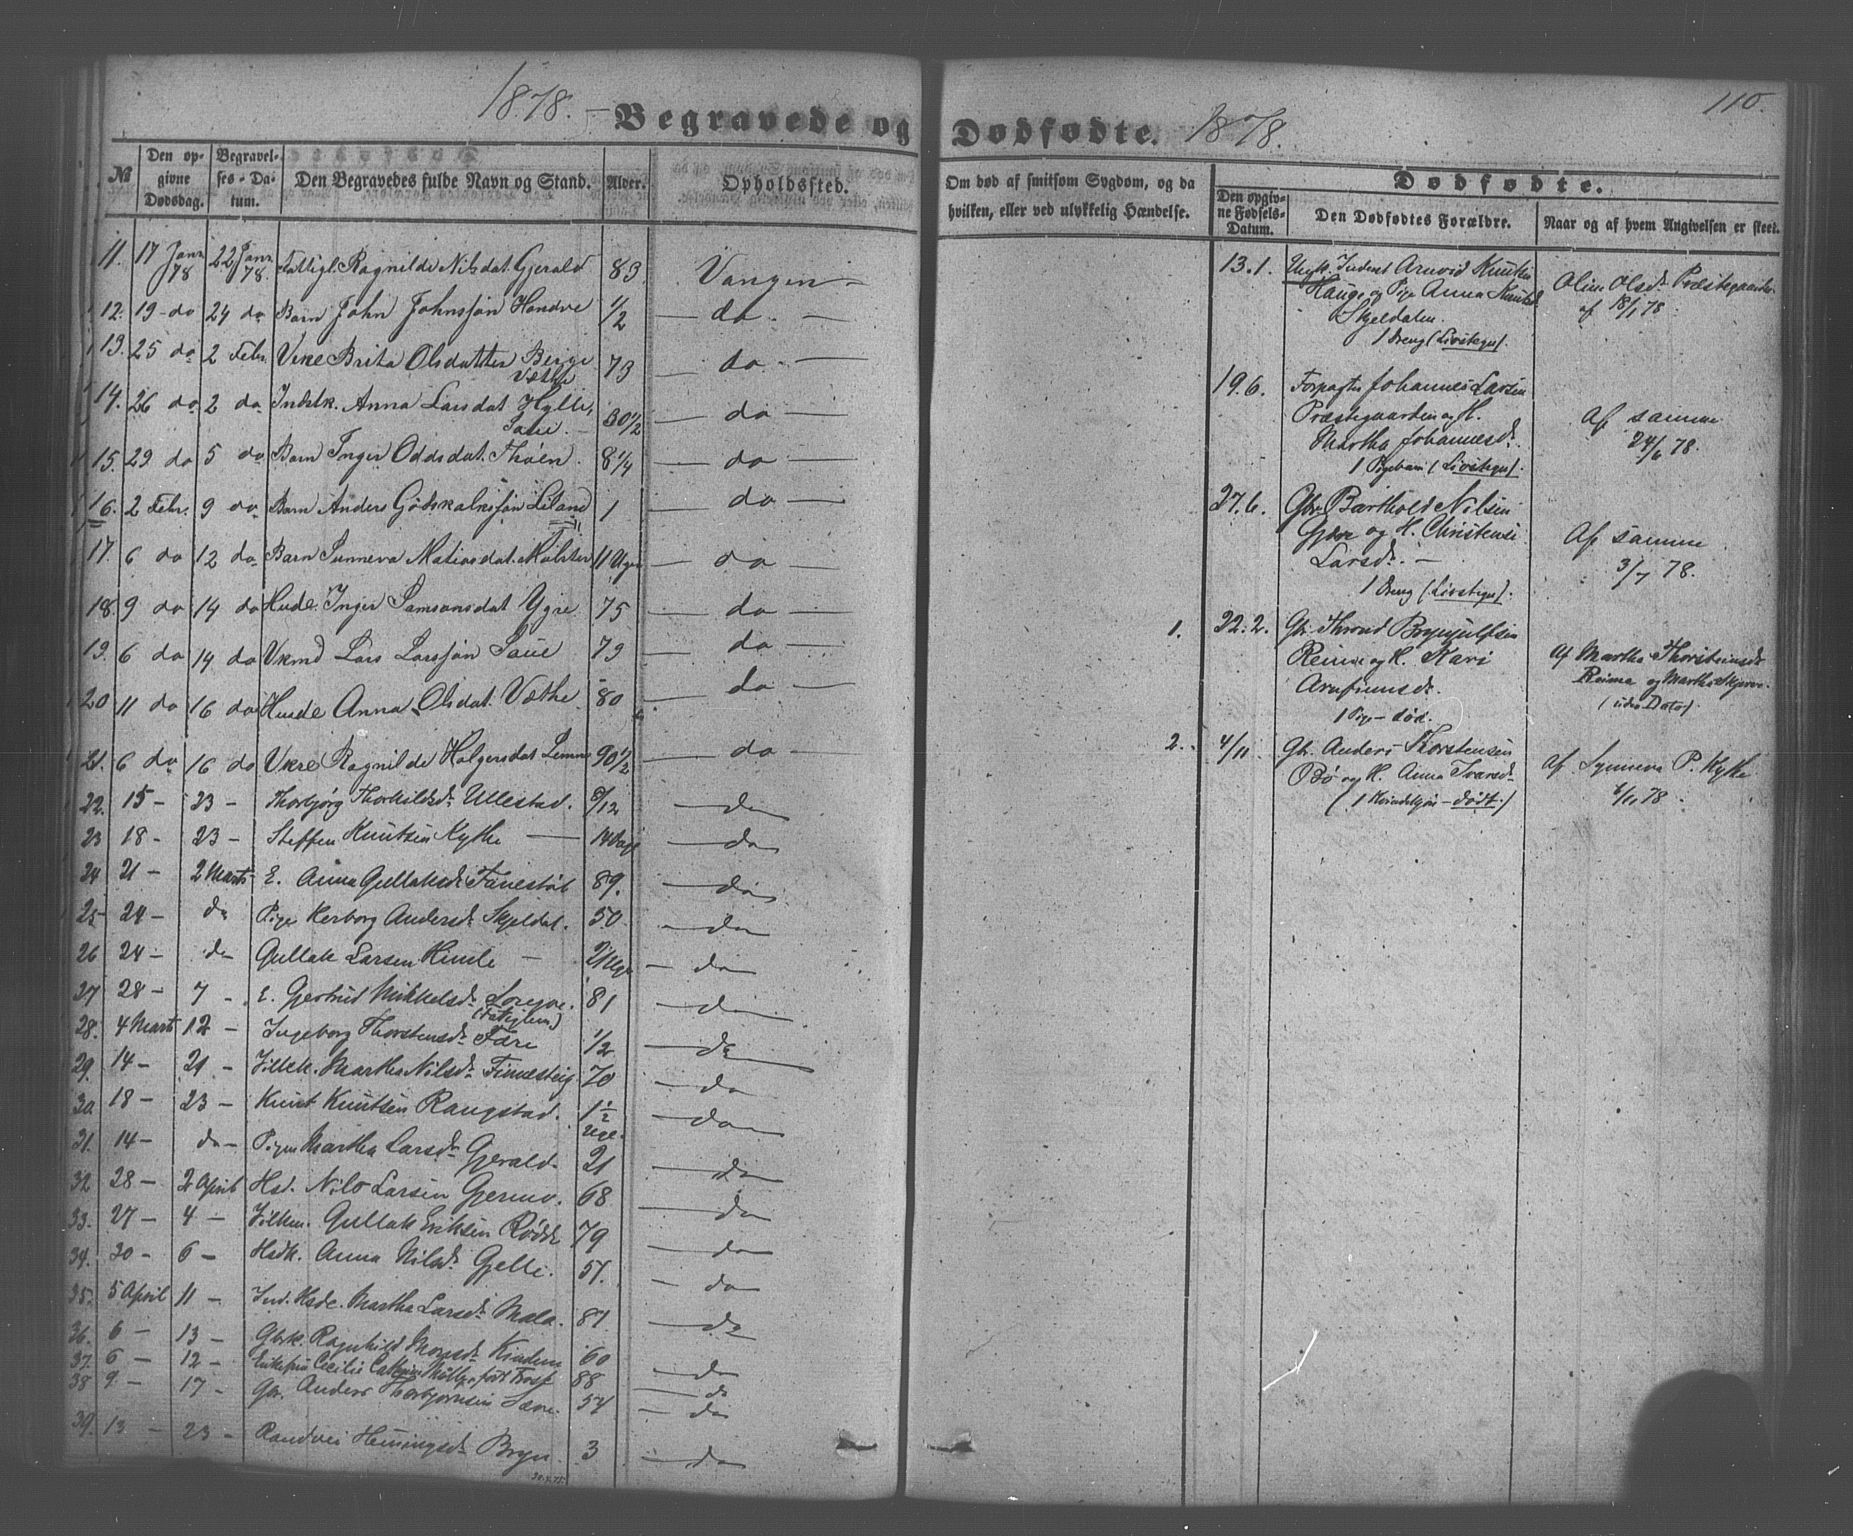 1878. — Begravede og Dødfødte. 1878.
110.
№ | Den opgivne Dødsdag. | Begravelses-Datum. | Den Begravedes fulde Navn og Stand. | Alder. | Opholdssted.
11. 17 Janr 78 22 Janr 78. Fattigl. Ragnilde Nilsdat. Gjerald 83 Vangen
12. 19 do 24 do Barn John Johnssøn Handve 1/2 — do —
13. 25 do 2 Febr. Brita Olsdatter Berge 73 — do —
Væthe
14. 26 do 2 do Anna Larsdat. Hylle, 30 1/2 — do —
Saue —
15. 29 do 5 do Barn Inger Oddsdat. Thøen. 8 1/4 — do —
16. 2 Febr. 9 do Barn Anders Gødskalkssøn Liland 1 do —
17. 6 do 12 do Barn Sunneva Matiasdat. Mølster 11 Uger — do —
18. 9 do 14 do Inger Samsonsdat Ygre 75 — do —
19. 6 do 14 do Lars Larssøn Saue 79 — do —
20 11 do 16 do Anna Olsdat. Væthe 80 — do —
21. 6 do 16 do Ragnilde Holgersdat 90 1/2 — do —
22. 15 — 23 — Thorbjørg Thorkildsdr. Ullestad. 8/12 — do
23 18 — 23 — Steffen Knutsen Kythe — 14 Dage — do
24 21 — 2 Marts E. Anna Gullaksdr. Finestøl 89. — do
25 24 — do Pige Herborg Andersd. Skjeldal. 50 — do
26 24 — do Gullak Larsen Himle — 2 Uge — do
27 28 — 7 — E. Gjertrud Mikkelsd. 81 — do
(Fattiglem)
28. 4 Marts 12 — Ingeborg Thorstensdr. Fære 1/2 — do
29. 14 — 21 — Martha Nilsdr. 70 — do
30. 18 — 23 — Knut Knutsen Rangstad. 1 1/2 — do
Uge.
31. 14 — do — Pigen Martha Larsdr. Gjerald. 21 — do
32 28 — 2 April Nils Larsen Gjermo. 68 — do
33. 27 — 4 — Gullak Eriksen Rødde 79 — do
34. 30 — 6 — Anna Nilsdr. Gjelle. 57. — do
35. 5 April 11 — Ind. Martha Larsdr. 87 — do
36. 6 — 13 — Gbrk. Ragnhild Monsdr. Kindem 60 — do
37. 6 — 12 — Enkefru Cecilie født Frost 88 — do
38 9 — 17 — Gbr. Anders Thorbjørnsen 54 — do
39. 13 — 23 — Randvei Henningsdr. Bryn 3 — do
Om død af smitsom Sygdom, og da
hvilken, eller ved ulykkelig Hændelse.
Dødfødte.
Den opgivne Fødsels-Datum. | Den Dødfødtes Forældre. | Naar og af hvem Angivelsen er skeet.
13.1. Ungk. Inderst Arnvid Knutsen
Hauge og Pige Anna Knutsd.
Skjeldalen.
1 Dreng (Livstegn).
Oline Olsdr. Præstegaarden
af 18/1 78.
19.6. Forpagter Johannes Larsen
Præstegaarden og H.
Martha Johannesdr.
1 Pigebarn (Livstegn).
Af samme
24/6 78.
27.6. Gbr. Barthold Nilsen
Gjære og H. Christense
Larsdr. —
1 Dreng (Livstegn).
Af samme
3/7 78.
1. 22.2. Gbr. Thrond Brynjulfsen
Reime og H. Kari
Arnfinnsdr.
1 Pige — død.
Af Martha Thorsteinsdr
Reime og Martha Skjerve
(uden Dato)
2. 4/11 Gbr. Anders Thorstensen
Bø og H. Anna Ivarsdr.
(1 — dødt.)
Af Synneva P. Kythe
6/11 78.